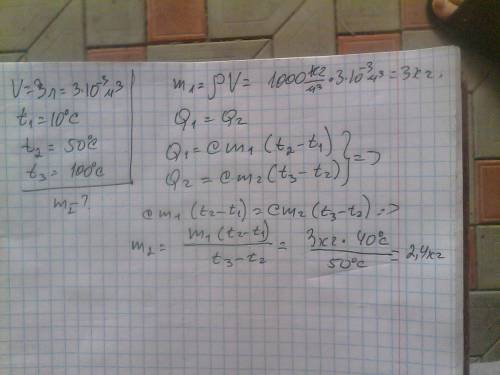 V=3л=3·10⁻³м³
t₁=10°C
t₂=50°C
t₃=100°C
m₂-?
m₁=ρV= 1000 кг/м³·3·10⁻³м³=3кг.
Q₁=Q₂
Q₁=cm₁(t₂-t₁)
Q₂=cm₂(t₃-t₂)} =>
cm₁(t₂-t₁)=cm₂(t₃-t₂) =>
m₂= m₁(t₂-t₁)/t₃-t₂ = 3кг·40°C/50°C = 2,4кг